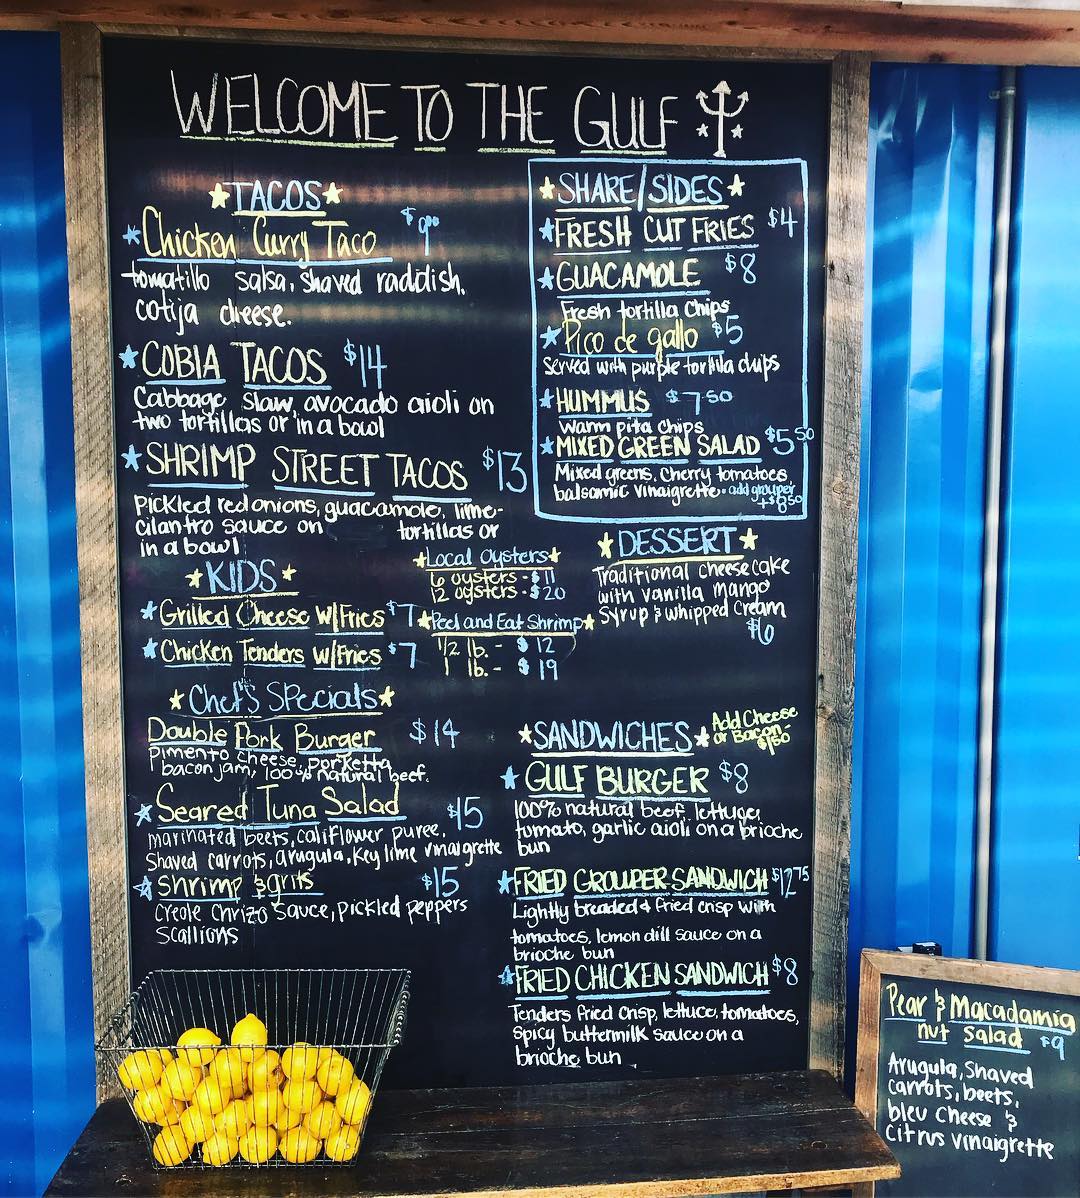 WELCOME TO THE GULF
TACOS
Chicken Curry Taco $9⁰⁰
tomatillo salsa, shaved raddish,
cotija cheese.
COBIA TACOS $14
Cabbage slaw, avocado aioli on
two tortillas or in a bowl
SHRIMP STREET TACOS $13
pickled red onions, guacamole, lime-
cilantro sauce on tortillas or
in a bowl
KIDS
Grilled Cheese w/Fries $7
Chicken Tenders w/Fries $7
Local Oysters
6 oysters - $11
12 oysters - $20
Peel and Eat Shrimp
1/2 lb. - $12
1 lb. - $19
Chef's Specials
Double Pork Burger $14
Pimento cheese, porketta,
bacon jam, 100% natural beef.
Seared Tuna Salad $15
marinated beets, califlower puree,
Shaved carrots, arugula, Key lime vinaigrette
Shrimp & grits $15
Creole Chrizo Sauce, pickled peppers
Scallions
SHARE/SIDES
FRESH CUT FRIES $4
GUACAMOLE $8
Fresh tortilla chips
Pico de gallo $5
Served with purple tortilla chips
HUMMUS $7.50
warm pita chips
MIXED GREEN SALAD $5⁵⁰
Mixed greens, cherry tomatoes
balsamic vinaigrette • add grouper
+$8⁵⁰
DESSERT
Traditional cheesecake
with vanilla mango
Syrup & whipped cream
$6
SANDWICHES
Add Cheese
or Bacon
$1.50
GULF BURGER $8
100% natural beef, lettuce,
tomato, garlic aioli on a brioche
bun
FRIED GROUPER SANDWICH $12⁷⁵
Lightly breaded & fried crisp with
tomatoes, lemon dill sauce on a
brioche bun
FRIED CHICKEN SANDWICH $8
Tenders fried crisp, lettuce, tomatoes,
spicy buttermilk sauce on a
brioche bun
Pear & Macadamia
nut salad $9
Arugula, Shaved
carrots, beets,
bleu cheese &
Citrus vinaigrette